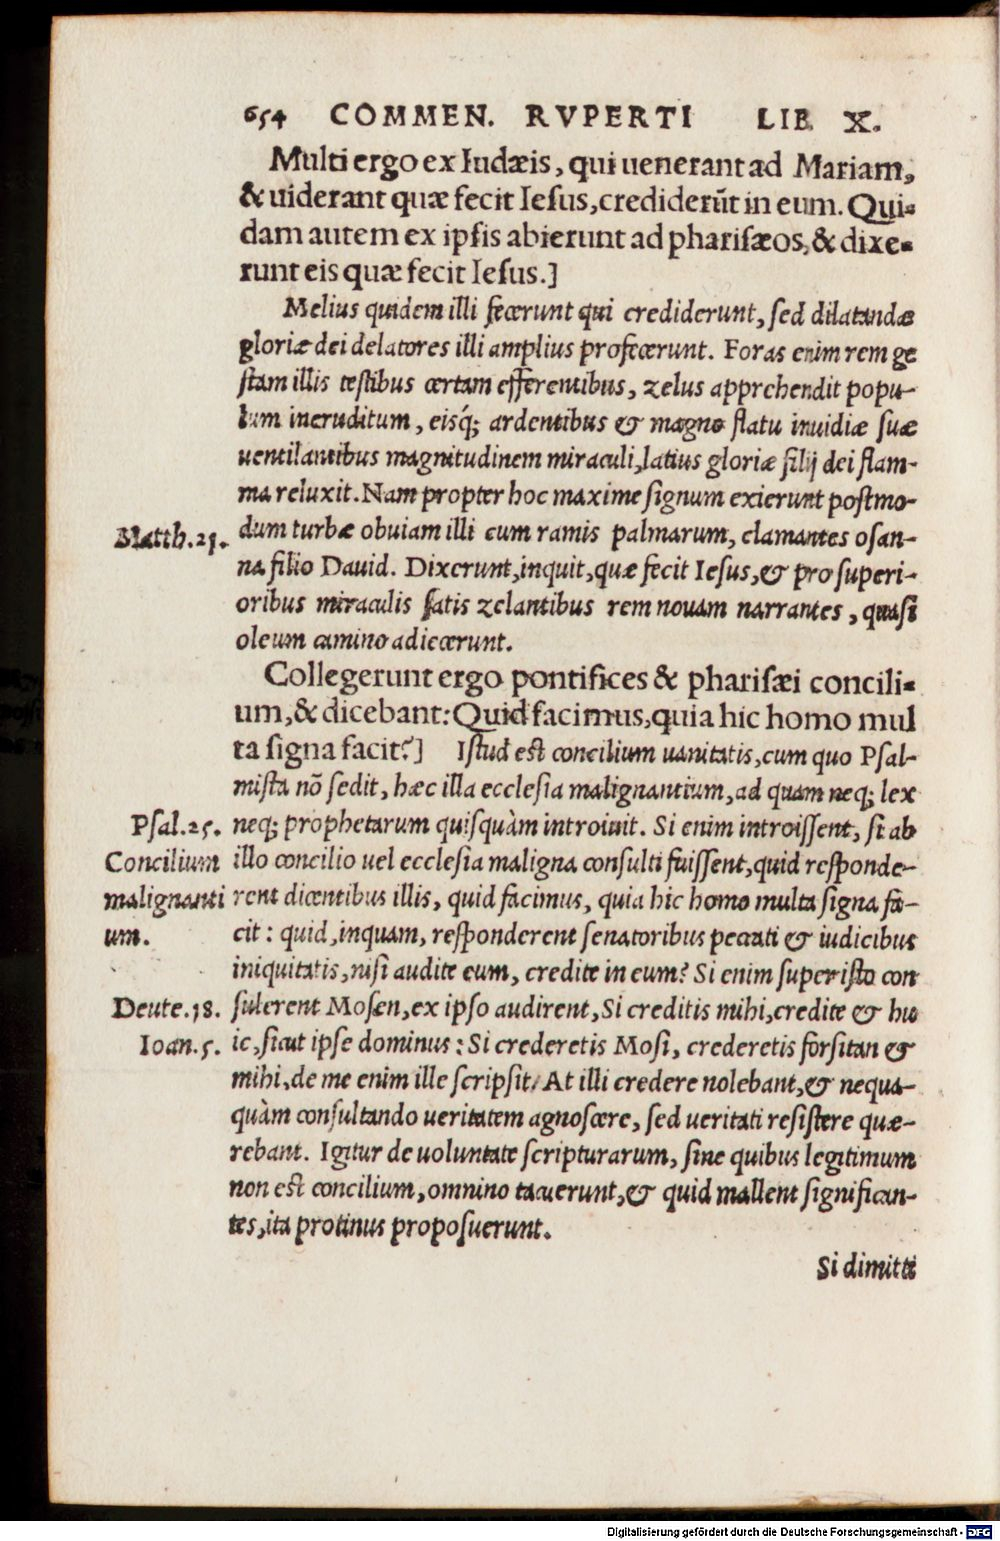 654 COMMEN. RVPERTI LIB. X.
Multi ergo ex Iudæis, qui uenerant ad Mariam,
& uiderant quæ fecit Iesus, crediderũt in eum. Qui-
dam autem ex ipsis abierunt ad pharisæos, & dixe-
runt eis quæ fecit Iesus.]
Melius quidem illi fecerunt qui crediderunt, sed dilatandæ
gloriæ dei delatores illi amplius profecerunt. Foras enim rem ge
stam illis testibus certam efferentibus, zelus apprehendit popu-
lum ineruditum, eisq́; ardentibus & magno flatu inuidiæ suæ
uentilantibus magnitudinem miraculi, latius gloriæ filij dei flam-
ma reluxit. Nam propter hoc maxime signum exierunt postmo-
Matth.21. dum turbæ obuiam illi cum ramis palmarum, clamantes osan-
na filio Dauid. Dixerunt, inquit, quæ fecit Iesus, & pro superi-
oribus miraculis satis zelantibus rem nouam narrantes, quasi
oleum camino adiecerunt.
Collegerunt ergo pontifices & pharisæi concili-
um, & dicebant: Quid facimus, quia hic homo mul
ta signa facit?] Istud est concilium uanitatis, cum quo Psal-
mista nõ sedit, hæc illa ecclesia malignantium, ad quam neq; lex
Psal.25. neq; prophetarum quisquàm introiuit. Si enim introissent, si ab
Concilium illo concilio uel ecclesia maligna consulti fuissent, quid responde-
malignanti rent dicentibus illis, quid facimus, quia hic homo multa signa fa-
um. cit: quid, inquam, responderent senatoribus peccati & iudicibus
iniquitatis, nisi audite eum, credite in eum? Si enim super isto con
Deute.18. sulerent Mosen, ex ipso audirent, Si creditis mihi, credite & hu
Ioan.5. ic, sicut ipse dominus: Si crederetis Mosi, crederetis forsitan &
mihi, de me enim ille scripsit. At illi credere nolebant, & nequa-
quàm consultando ueritatem agnoscere, sed ueritati resistere quæ-
rebant. Igitur de uoluntate scripturarum, sine quibus legitimum
non est concilium, omnino tacuerunt, & quid mallent significan-
tes, ita protinus proposuerunt.
Si dimitti
Digitalisierung gefördert durch die Deutsche Forschungsgemeinschaft - DFG